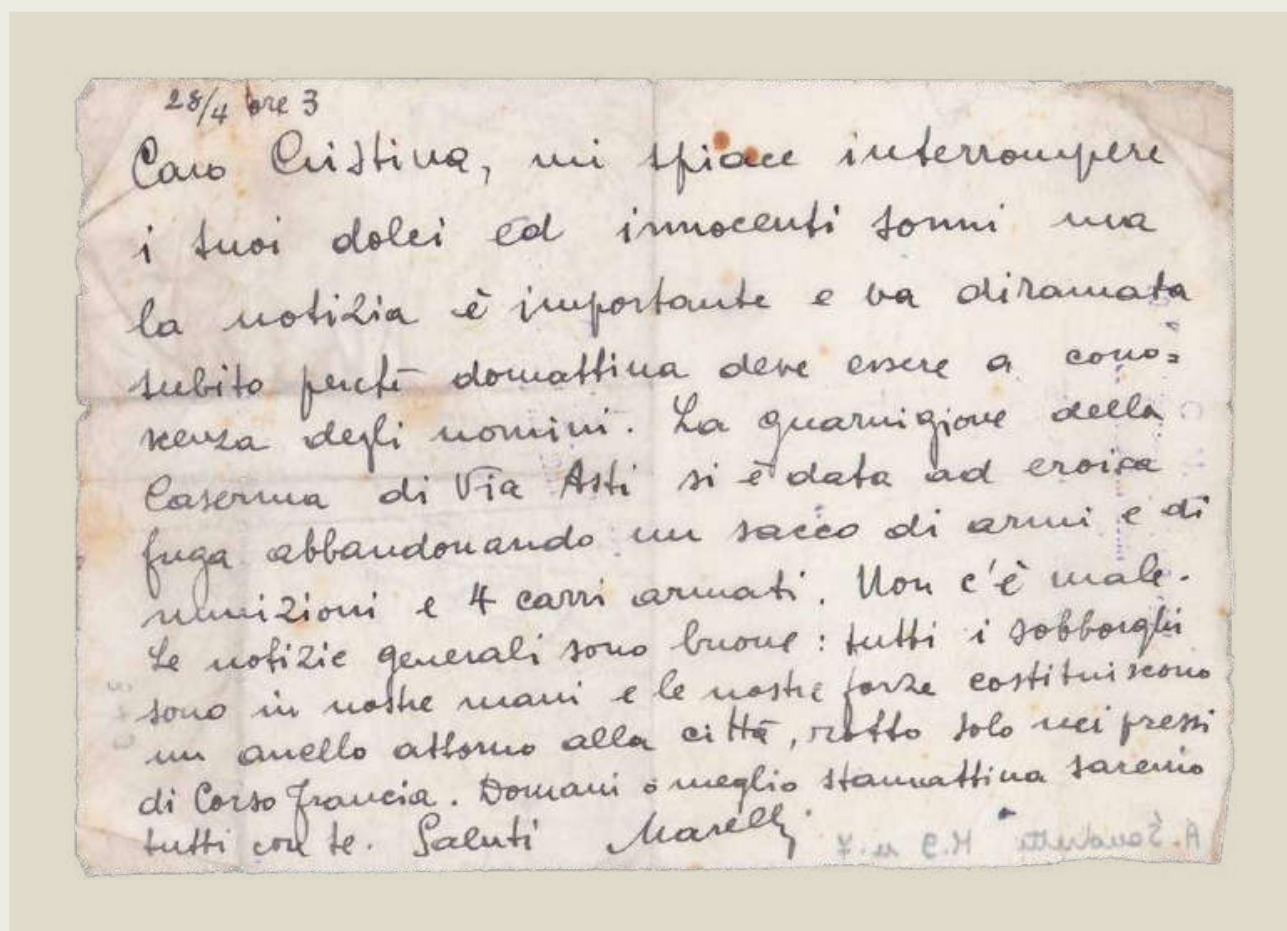 28/4 ore 3
Caro Cristina, mi spiace interrompere
i tuoi dolci ed innocenti sonni ma
la notizia è importante e va diramata
subito perchè domattina deve essere a cono=
scenza degli uomini. La guarnigione della
Caserma di Via Asti si è data ad eroica
fuga abbandonando un sacco di armi e di
munizioni e 4 carri armati. Non c'è male.
Le notizie generali sono buone: tutti i sobborghi
sono in nostre mani e le nostre forze costituiscono
un anello attorno alla città, rotto solo nei pressi
di Corso Francia. Domani o meglio stamattina saremo
tutti con te. Saluti Marelli